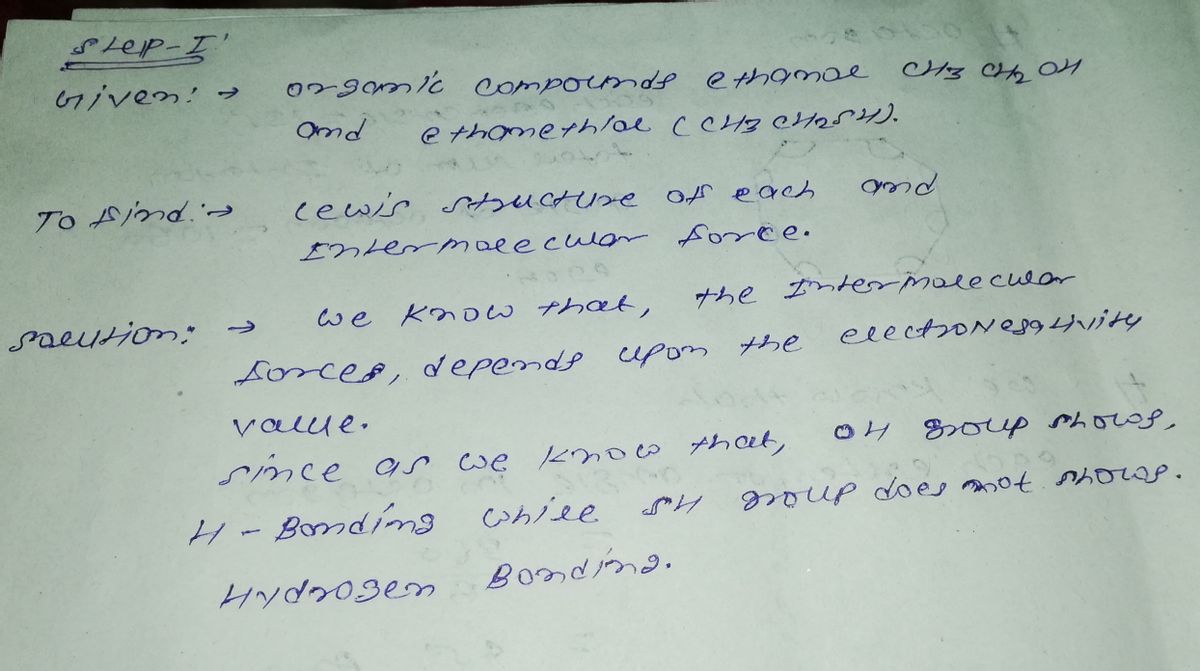 Step-I'
Given: → organic compounds ethanol CH3 CH2 OH
and ethanethiol (CH3 CH2SH).
To find: → Lewis structure of each and
Intermolecular force.
Solution: → We know that, the Intermolecular
forces, depends upon the electroNegativity
value.
since as we know that, OH group shows,
H - Bonding while SH group does not shows.
Hydrogen Bonding.